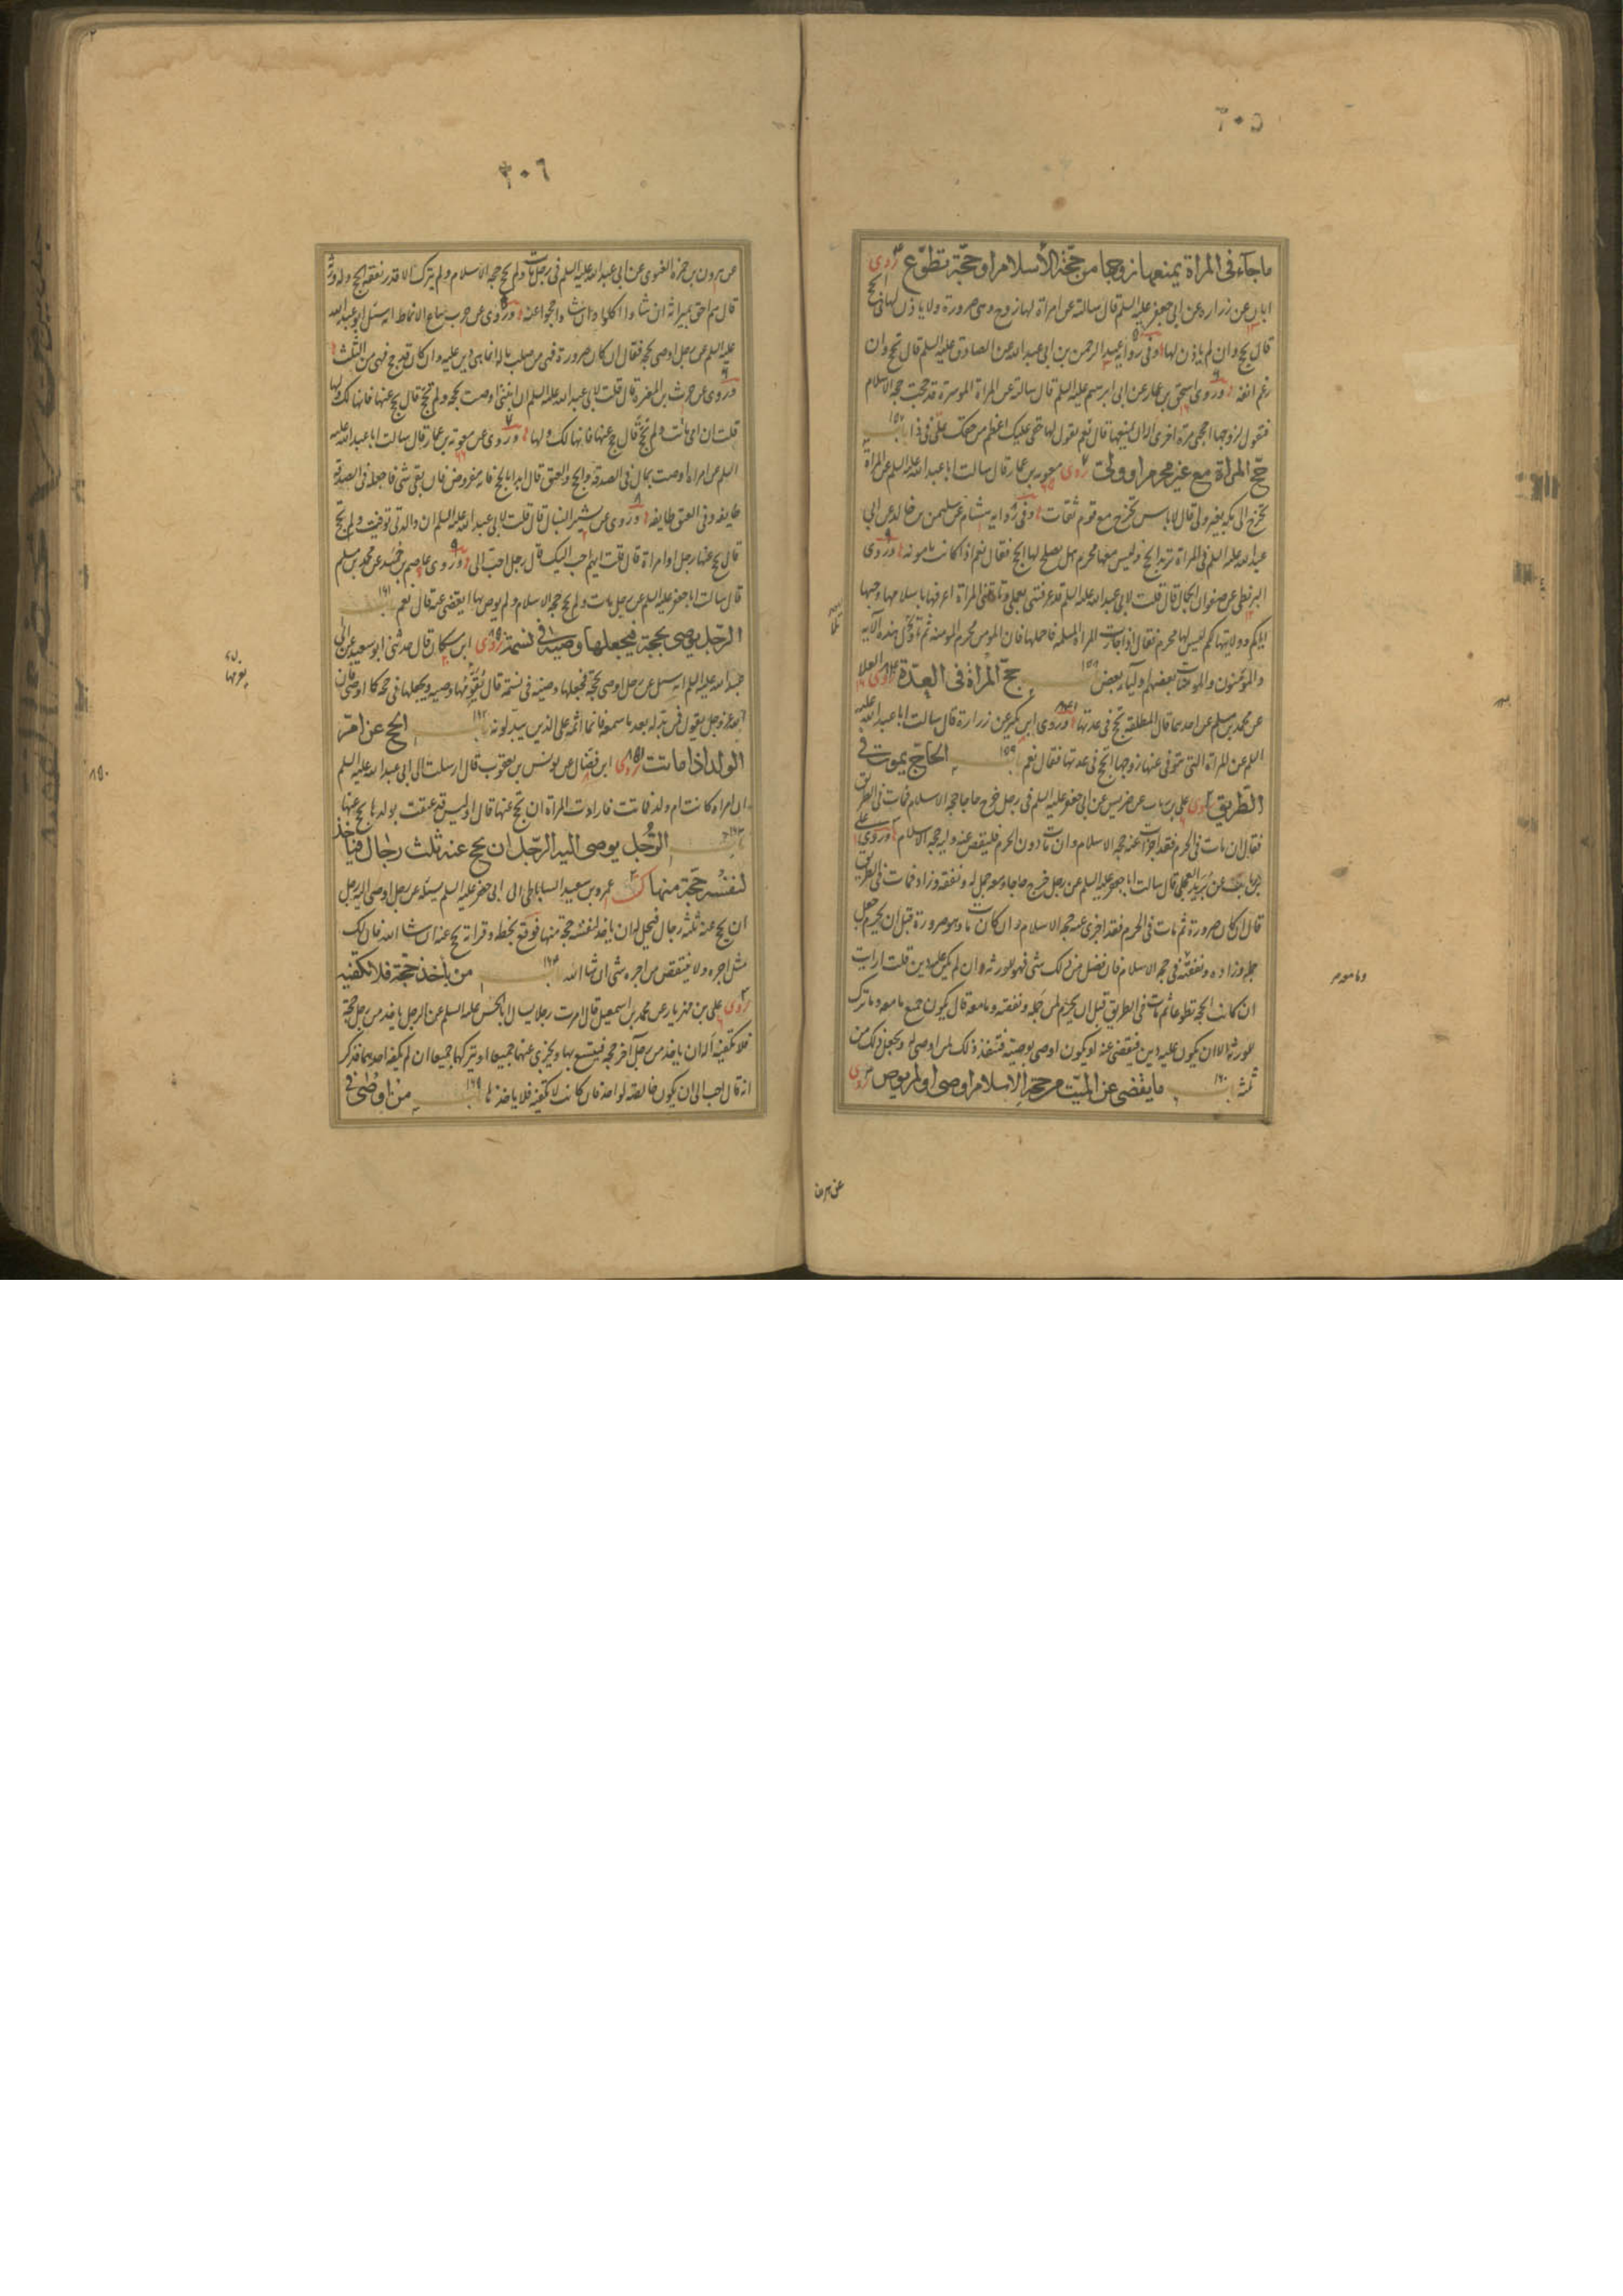 ٣٠٥
ما جآء فى المراة يمنعها زوجها من حجّة الأسلام او حجّة تطوّع روى
ابان عن زرارة عن ابى جعفر عليه السلم قال سالته عن امراة لها زوج وهى صرورة ولا ياذن لها فى الحج
قال تحج وان لم ياذن لها وفى رواية عبد الرحمن بن ابى عبد الله عن الصادق عليه السلم قال تحج وان
رغم انفه وروى اسحق بن عمار عن ابى ابرهيم عليه السلم قال سالته عن المراة الموسرة قد حجت حجة الاسلام
فتقول لزوجها احجنى مرة اخرى اله ان يمنعها قال نعم يقول لها حقى عليك اعظم من حقك على فى ذا باب ١٥٧
حجّ المراة مع غير محرم او ولىّ روى معوية بن عمار قال سالت ابا عبد الله عليه السلم عن المراة
تخرج الى مكة بغير ولى قال لا باس تخرج مع قوم ثقات وفى رواية هشام عن سليمن بن خالد عن ابى
عبد الله عليه السلم فى المراة تريد الحج وليس معها محرم هل يصلح لها الحج فقال نعم اذا كانت مامونة وروى
البزنطى عن صفوان الجمال قال قلت لابى عبد الله عليه السلم قد عرفتنى بعملى وتاتينى المراة اعرفها باسلامها وحبها
اياكم وولايتها لكم ليس لها محرم فقال اذا جاءت المراة المسلمة فاحملها فان المومن محرم المومنة ثم تلا هذه الاية
والمؤمنون والمؤمنات بعضهم اوليآء بعض باب ١٥٨ حجّ المراة فى العدّة روى العلا
عن محمد بن مسلم عن احدهما قال المطلقة تحج فى عدتها وروى ابن بكير عن زرارة قال سالت ابا عبد الله عليه
السلم عن المراة التى يتوفى عنها زوجها اتحج فى عدتها فقال نعم باب ١٥٩ الحاجّ يموت فى
الطريق روى على بن رئاب عن ضريس عن ابى جعفر عليه السلم فى رجل خرج حاجا حجة الاسلام فمات فى الطريق
فقال ان مات فى الحرم فقد اجزات عنه حجة الاسلام وان مات دون الحرم فليقض عنه وليه حجة الاسلام وروى على
بن رئاب عن بريد العجلى قال سالت ابا جعفر عليه السلم عن رجل خرج حاجا ومعه جمل له ونفقة وزاد فمات فى الطريق
قال ان كان صرورة ثم مات فى الحرم فقد اجزى عنه حجة الاسلام وان كان مات وهو صرورة قبل ان يحرم جعل
جمله وزاده ونفقته فى حجة الاسلام فان فضل من ذلك شى فهو للورثة ان لم يكن عليه دين قلت ارايت
ان كانت الحجة تطوعا ثم مات فى الطريق قبل ان يحرم لمن جمله ونفقته وما معه قال يكون جميع ما معه وما ترك
للورثة الا ان يكون عليه دين فيقضى عنه او يكون اوصى بوصية فتنفذ ذلك لمن اوصى له ويجعل ذلك من
ثلثه باب ١٦٠ ما يقضى عن الميّت من حجّة الاسلام اوصى او لم يوص روى
وما معه م
عن هرون
٣٠٦
عن هرون بن حمزة الغنوى عن ابى عبد الله عليه السلم فى رجل مات ولم يحج حجة الاسلام ولم يترك الا قدر نفقة الحج وله ورثة
قال هم احق بميراثه ان شاءوا اكلوا وان شاءوا حجوا عنه وروى عن حرب بياع الانماط انه سئل ابو عبد الله
عليه السلم عن رجل اوصى بحجة فقال ان كان صرورة فهى من صلب ماله انما هى دين عليه وان كان قد حج فهى من الثلث
وروى عن حرث بن المغيرة قال قلت لابى عبد الله عليه السلم ان ابنتى اوصت بحجة ولم تحج قال حج عنها فانها لك ولها
قلت ان امى ماتت ولم تحج قال حج عنها فانها لك ولها وروى عن معوية بن عمار قال سالت ابا عبد الله عليه
السلم عن امراة اوصت بمال فى الصدقة والحج والعتق قال ابدا بالحج فانه مفروض فان بقى شى فاجعله فى الصدقة
طايفة وفى العتق طايفة وروى عن بشير النبال قال قلت لابى عبد الله عليه السلم ان والدتى توفيت ولم تحج
قال يحج عنها رجل او امراة قال قلت ايهم احب اليك قال رجل احب الى وروى عاصم بن حميد عن محمد بن مسلم
قال سالت ابا جعفر عليه السلم عن رجل مات ولم يحج حجة الاسلام ولم يوص بها ايقضى عنه قال نعم باب ١٦١
الرّجل يوصى بحجة فيجعلها وصيّه فى نسمة روى ابن مسكان قال حدثنى ابو سعيد عن ابى
عبد الله عليه السلم انه سئل عن رجل اوصى بحجة فجعلها وصيه فى نسمة قال يغرمها وصيه ويجعلها فى حجة كما اوصى فان
الله عز وجل يقول فمن بدّله بعد ما سمعه فانما اثمه على الذين يبدّلونه باب ١٦٢ الحج عن امّ
الولد اذا ماتت روى ابن فضال عن يونس بن يعقوب قال ارسلت الى ابى عبد الله عليه السلم
ان امراة كانت ام ولد فماتت فارادت المراة ان تحج عنها قال اوليس قد عتقت بولدها تحج عنها
باب ١٦٣ الرّجل يوصى اليه الرّجل ان يحج عنه ثلث رجال فياخذ
لنفسه حجّة منها كتب عمرو بن سعيد الساباطى الى ابى جعفر عليه السلم يسئله عن رجل اوصى اليه رجل
ان يحج عنه ثلثة رجال فيحل له ان ياخذ لنفسه حجة منها فوقع بخطه وقراته حج عنه ان شا الله فان لك
مثل اجره ولا ينتقص من اجره شى ان شا الله باب ١٦٤ من ياخذ حجّة فلا تكفيه
روى على بن مهزيار عن محمد بن اسمعيل قال امرت رجلا يسال ابا الحسن عليه السلم عن الرجل ياخذ من رجل حجة
فلا تكفيه أله ان ياخذ من رجل آخر حجة فيتسع بها ويجزى عنهما جميعا او يتركهما جميعا ان لم تكفه احديهما فذكر
انه قال احب الى ان يكون خالصة لواحد فان كانت لا تكفيه فلا ياخذها باب من اوصى فى
يغرمها